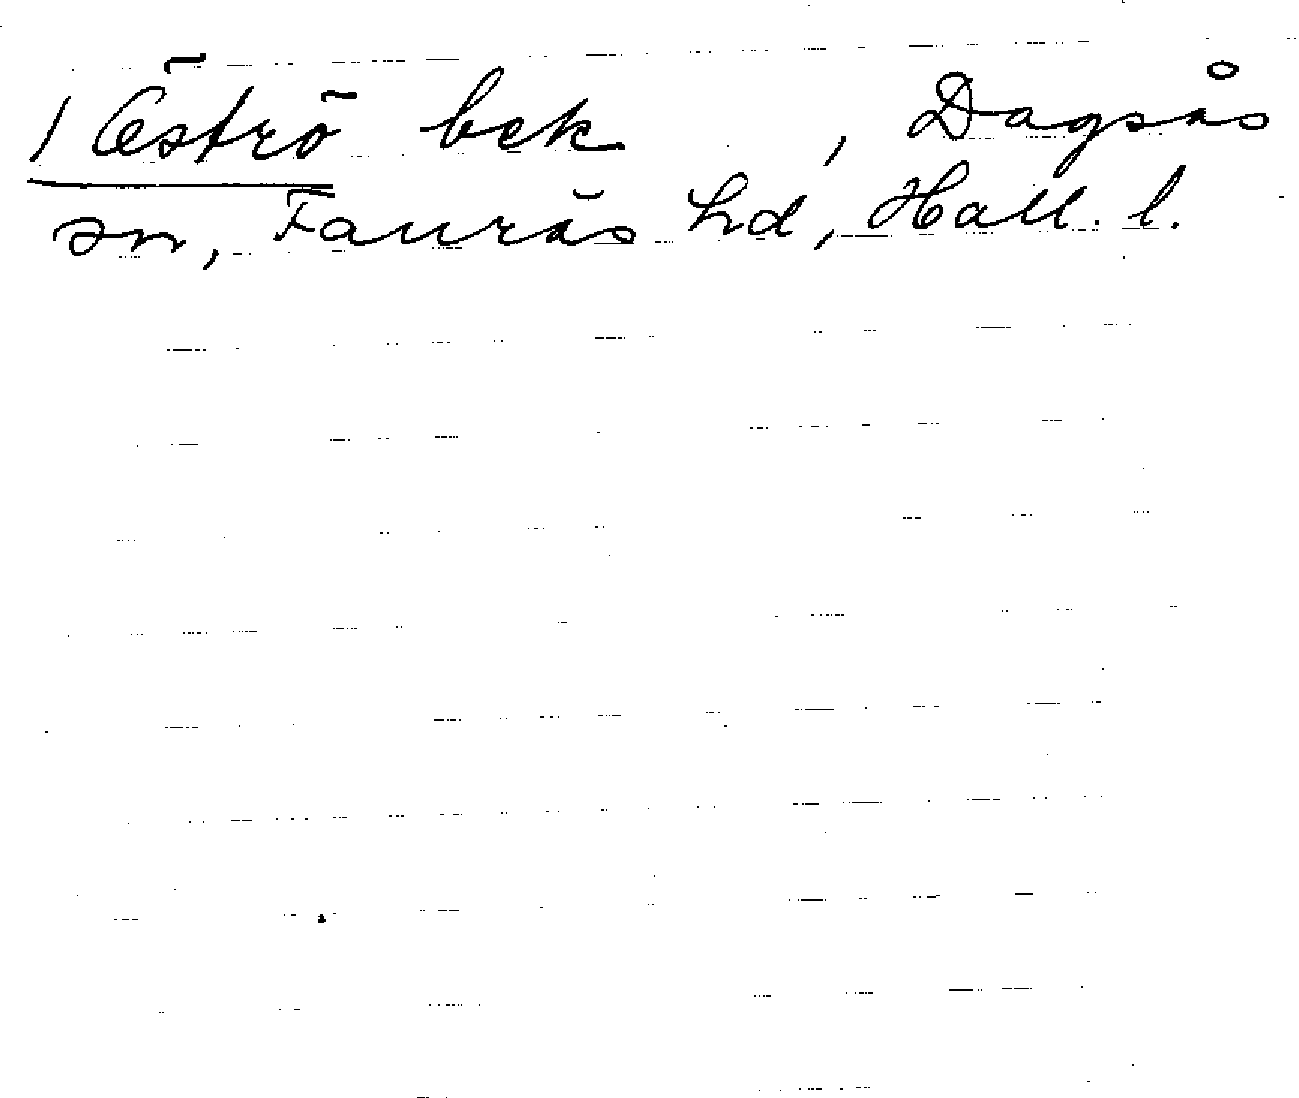 / Öströ bek , Dagsås
sn, Faurås hd, Hall. l.